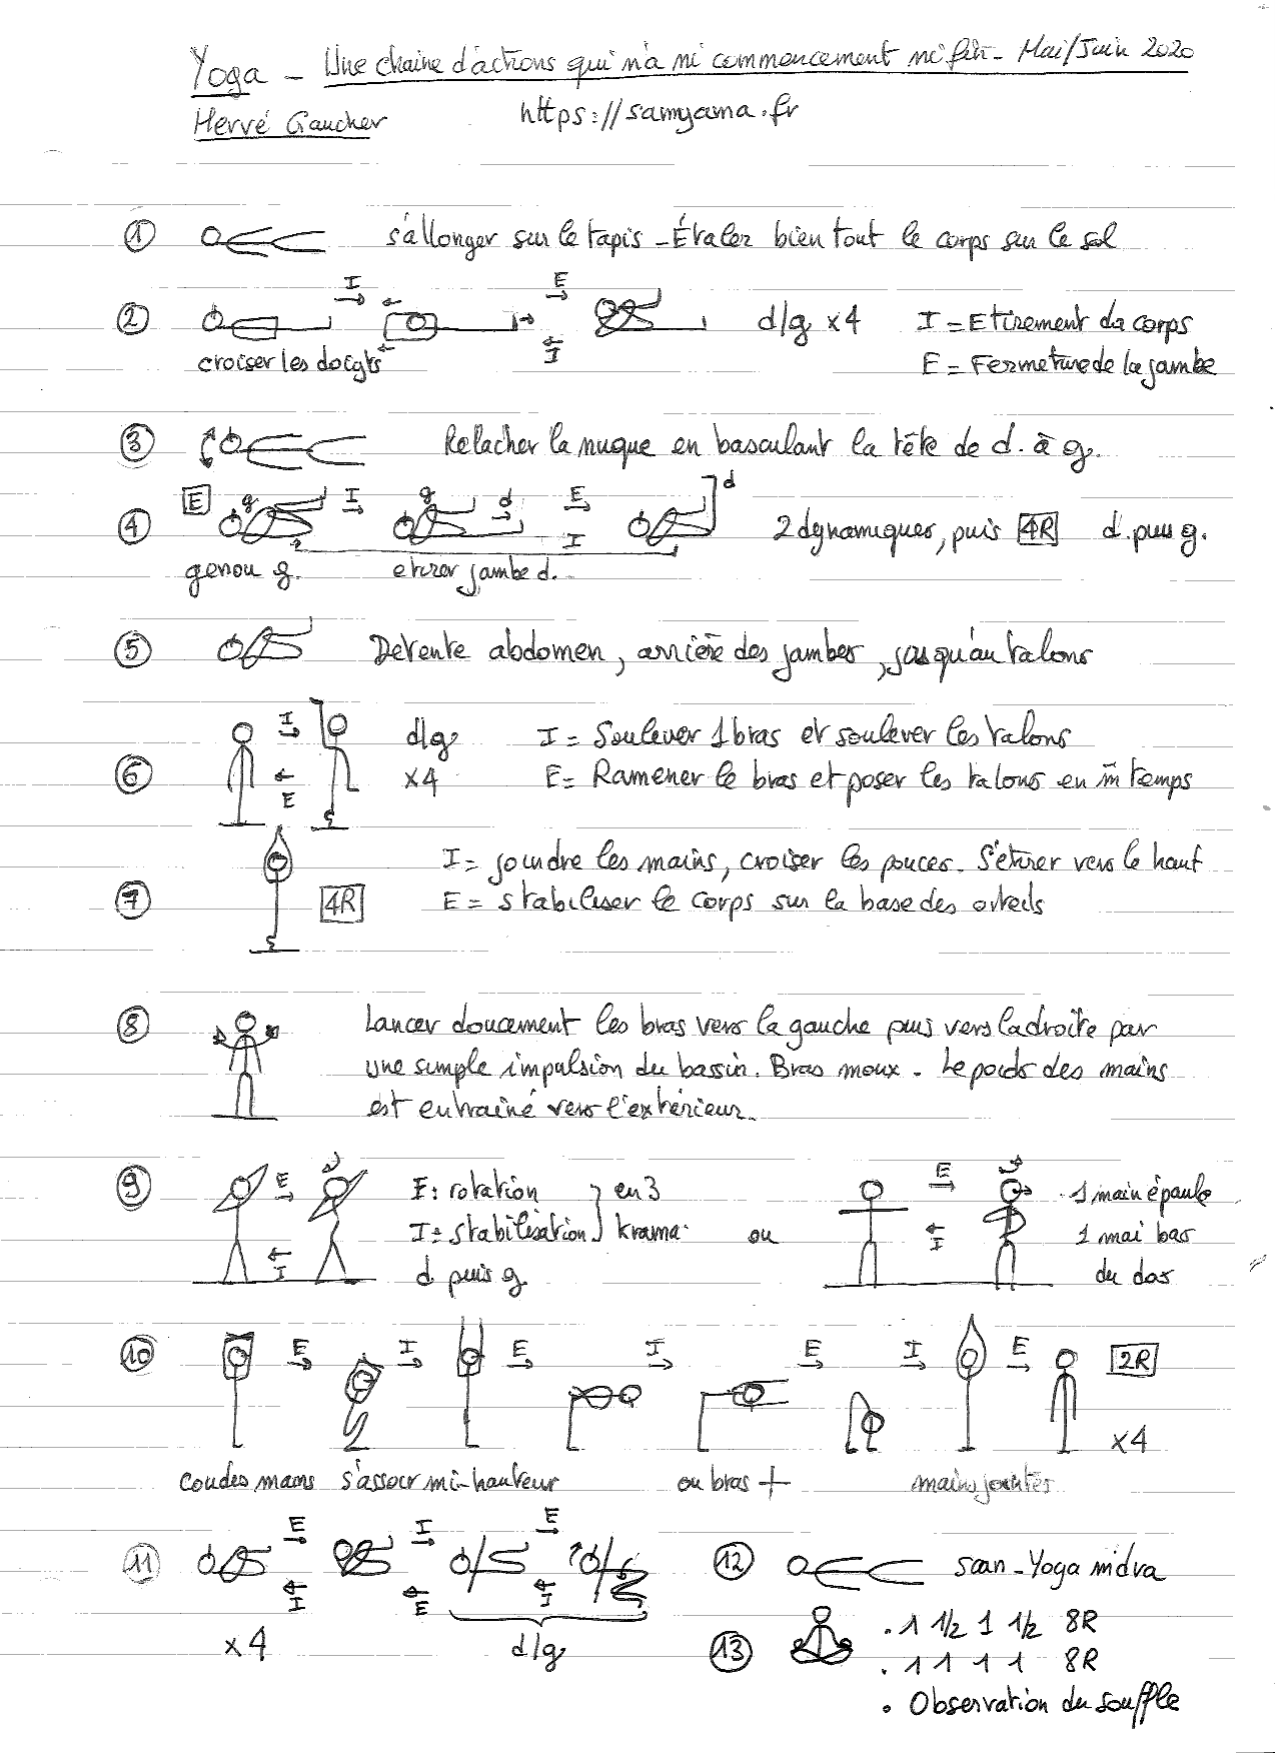 Yoga – Une chaine d'actions qui n'a ni commencement ni fin – Mai/Juin 2020
Hervé Gaucher
https://samyama.fr
① s'allonger sur le tapis – Étaler bien tout le corps sur le sol
I E
② d/g x4 I = Etirement du corps
I
croiser les doigts E = Fermeture de la jambe
③ Relacher la nuque en basculant la tête de d. à g.
E g I g d E d
④ I 2 dynamiques, puis 4R d. puis g.
genou g. etirer jambe d.
⑤ Détente abdomen, arrière des jambes, jusqu'au talons
I
d/g I = Soulever 1 bras et soulever les talons
⑥ x4 E = Ramener le bras et poser les talons en m̄ temps
E
I = joindre les mains, croiser les pouces. S'etirer vers le haut
⑦ 4R E = stabiliser le corps sur la base des orteils
⑧ Lancer doucement les bras vers la gauche puis vers la droite par
une simple impulsion du bassin. Bras moux. Le poids des mains
est entrainé vers l'extérieur.
⑨ E E: rotation } en 3 E 1 main épaule
I I = stabilisation } krama. ou I 1 mai bas
d puis g. du dos
⑩ E I E I E I E 2R
x4
coudes mains s'assoir mi-hauteur ou bras + mains jointes
E I E
⑪ ⑫ saan – Yoga nidra
I E I
x4 d/g
⑬ . 1 1/2 1 1/2 8R
. 1 1 1 1 8R
. Observation du souffle